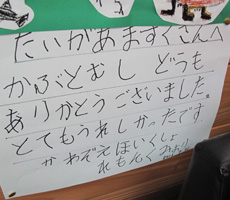 たいがあますくさんへ
かぶとむし どうも
ありがとうございました。
とてもうれしかったです
かわぞえほいくしょ
れもんぐみより